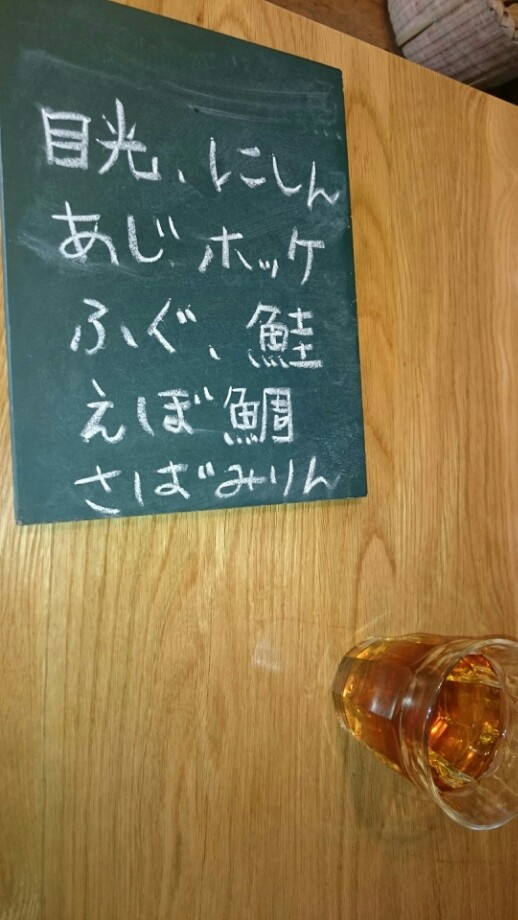 目光、にしん
あじ ホッケ
ふぐ、鮭
えぼ鯛
さばみりん